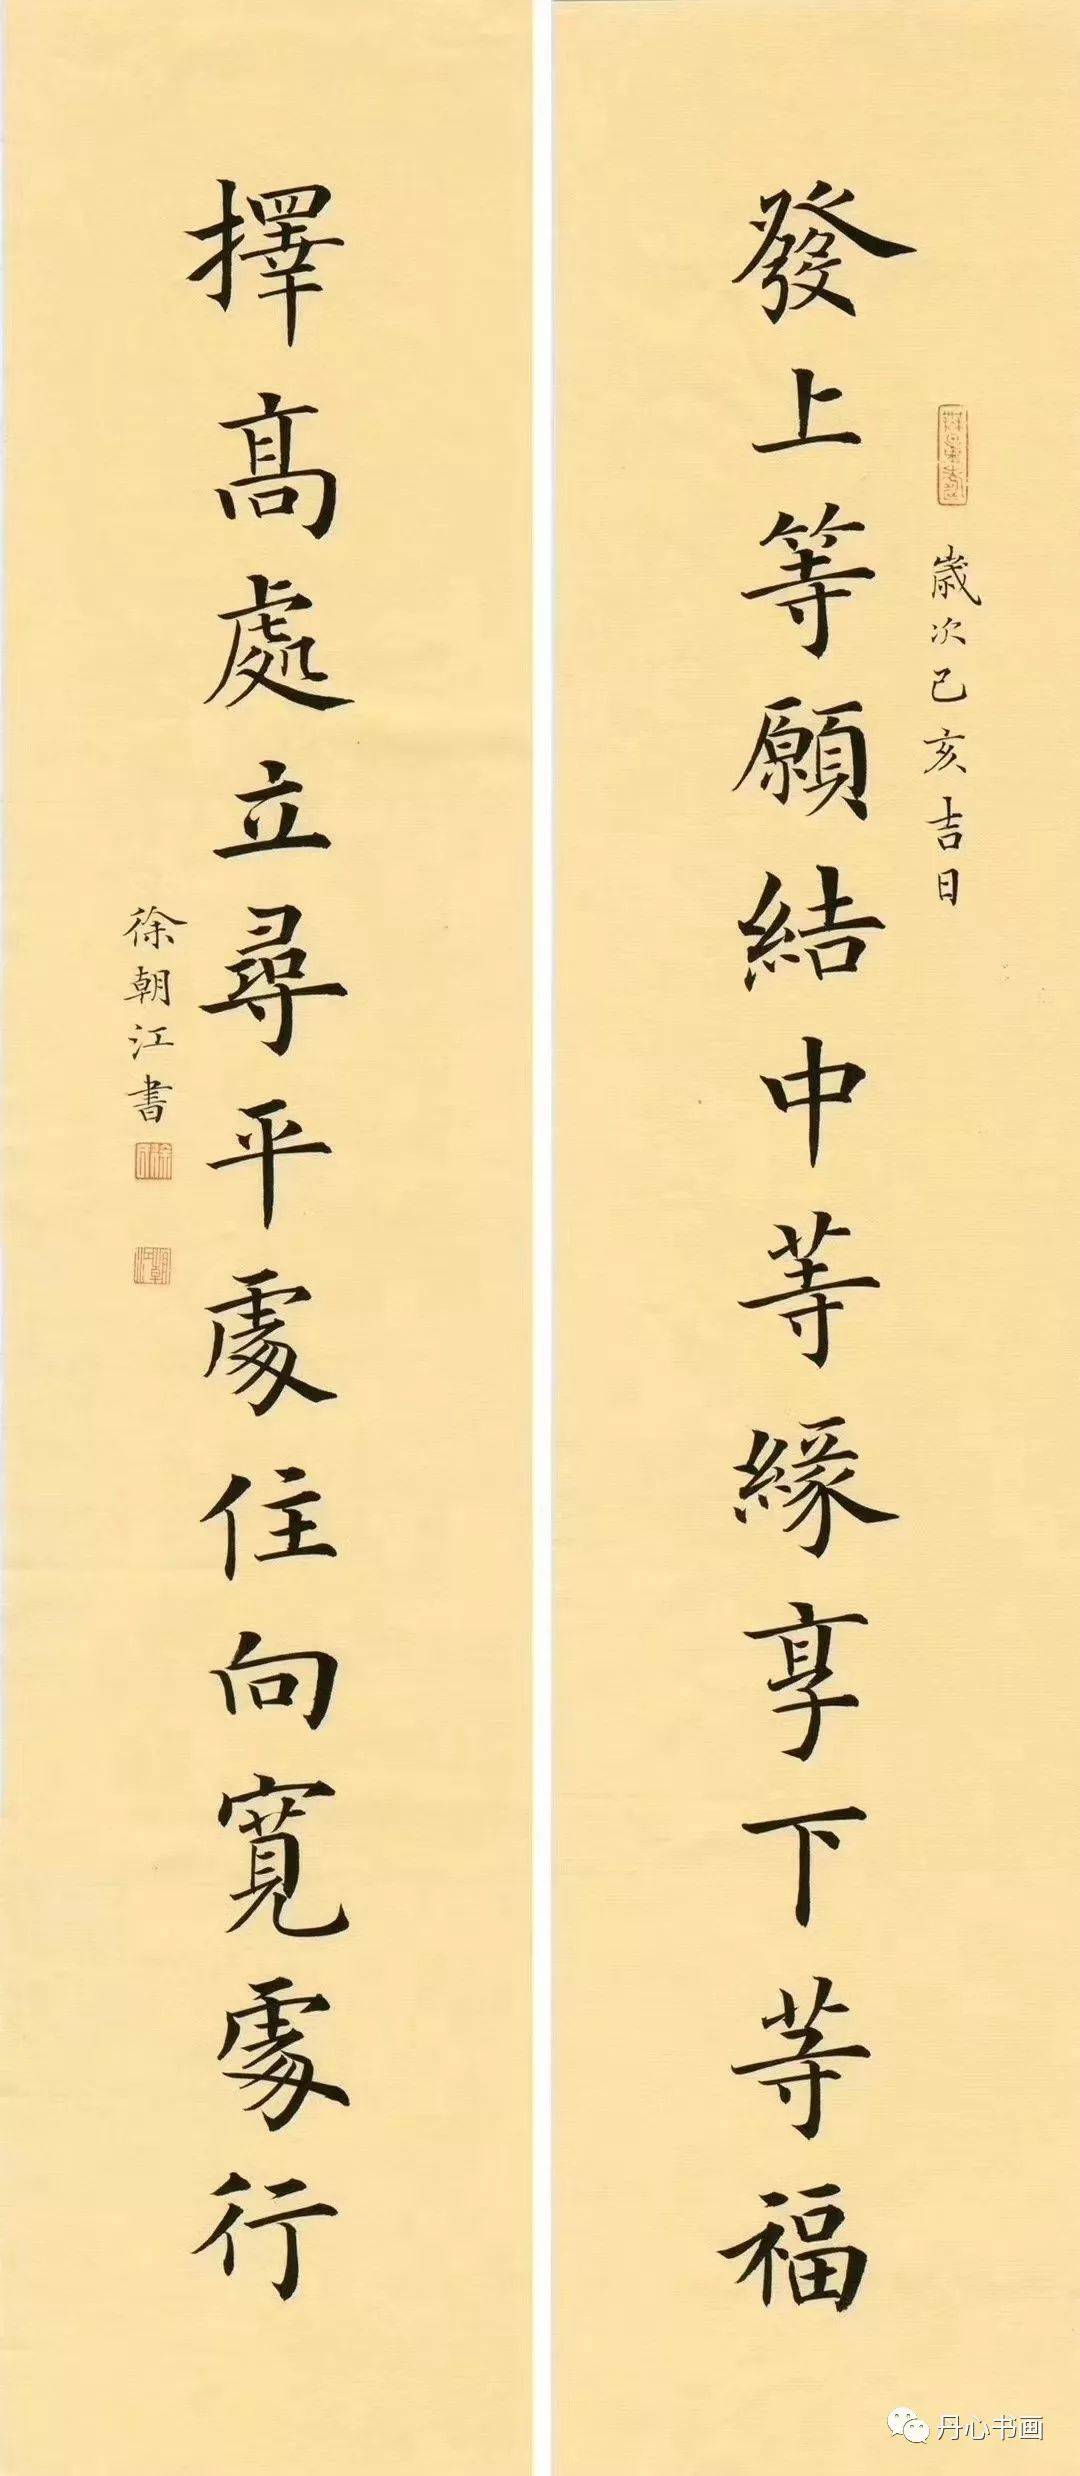 發上等願結中等緣享下等福
歲次己亥吉日
擇高處立尋平處住向寬處行
徐朝江書
丹心书画